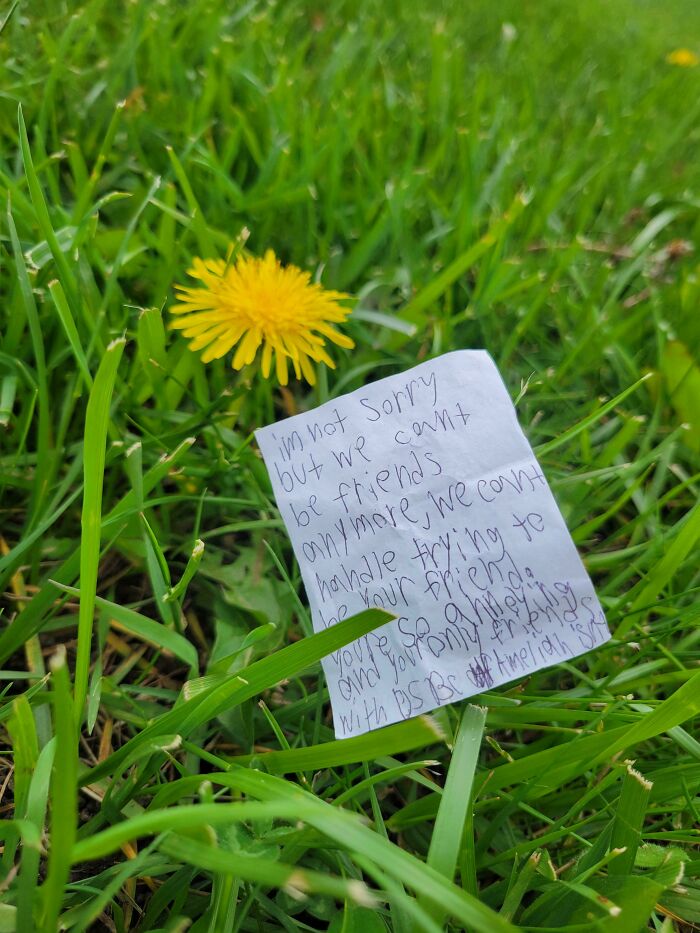 im not sorry
but we cannt
be friends
anymore, we cant
handle trying to
be your friend.
your so annoying
and your only frinds
with us Bc Ameliah